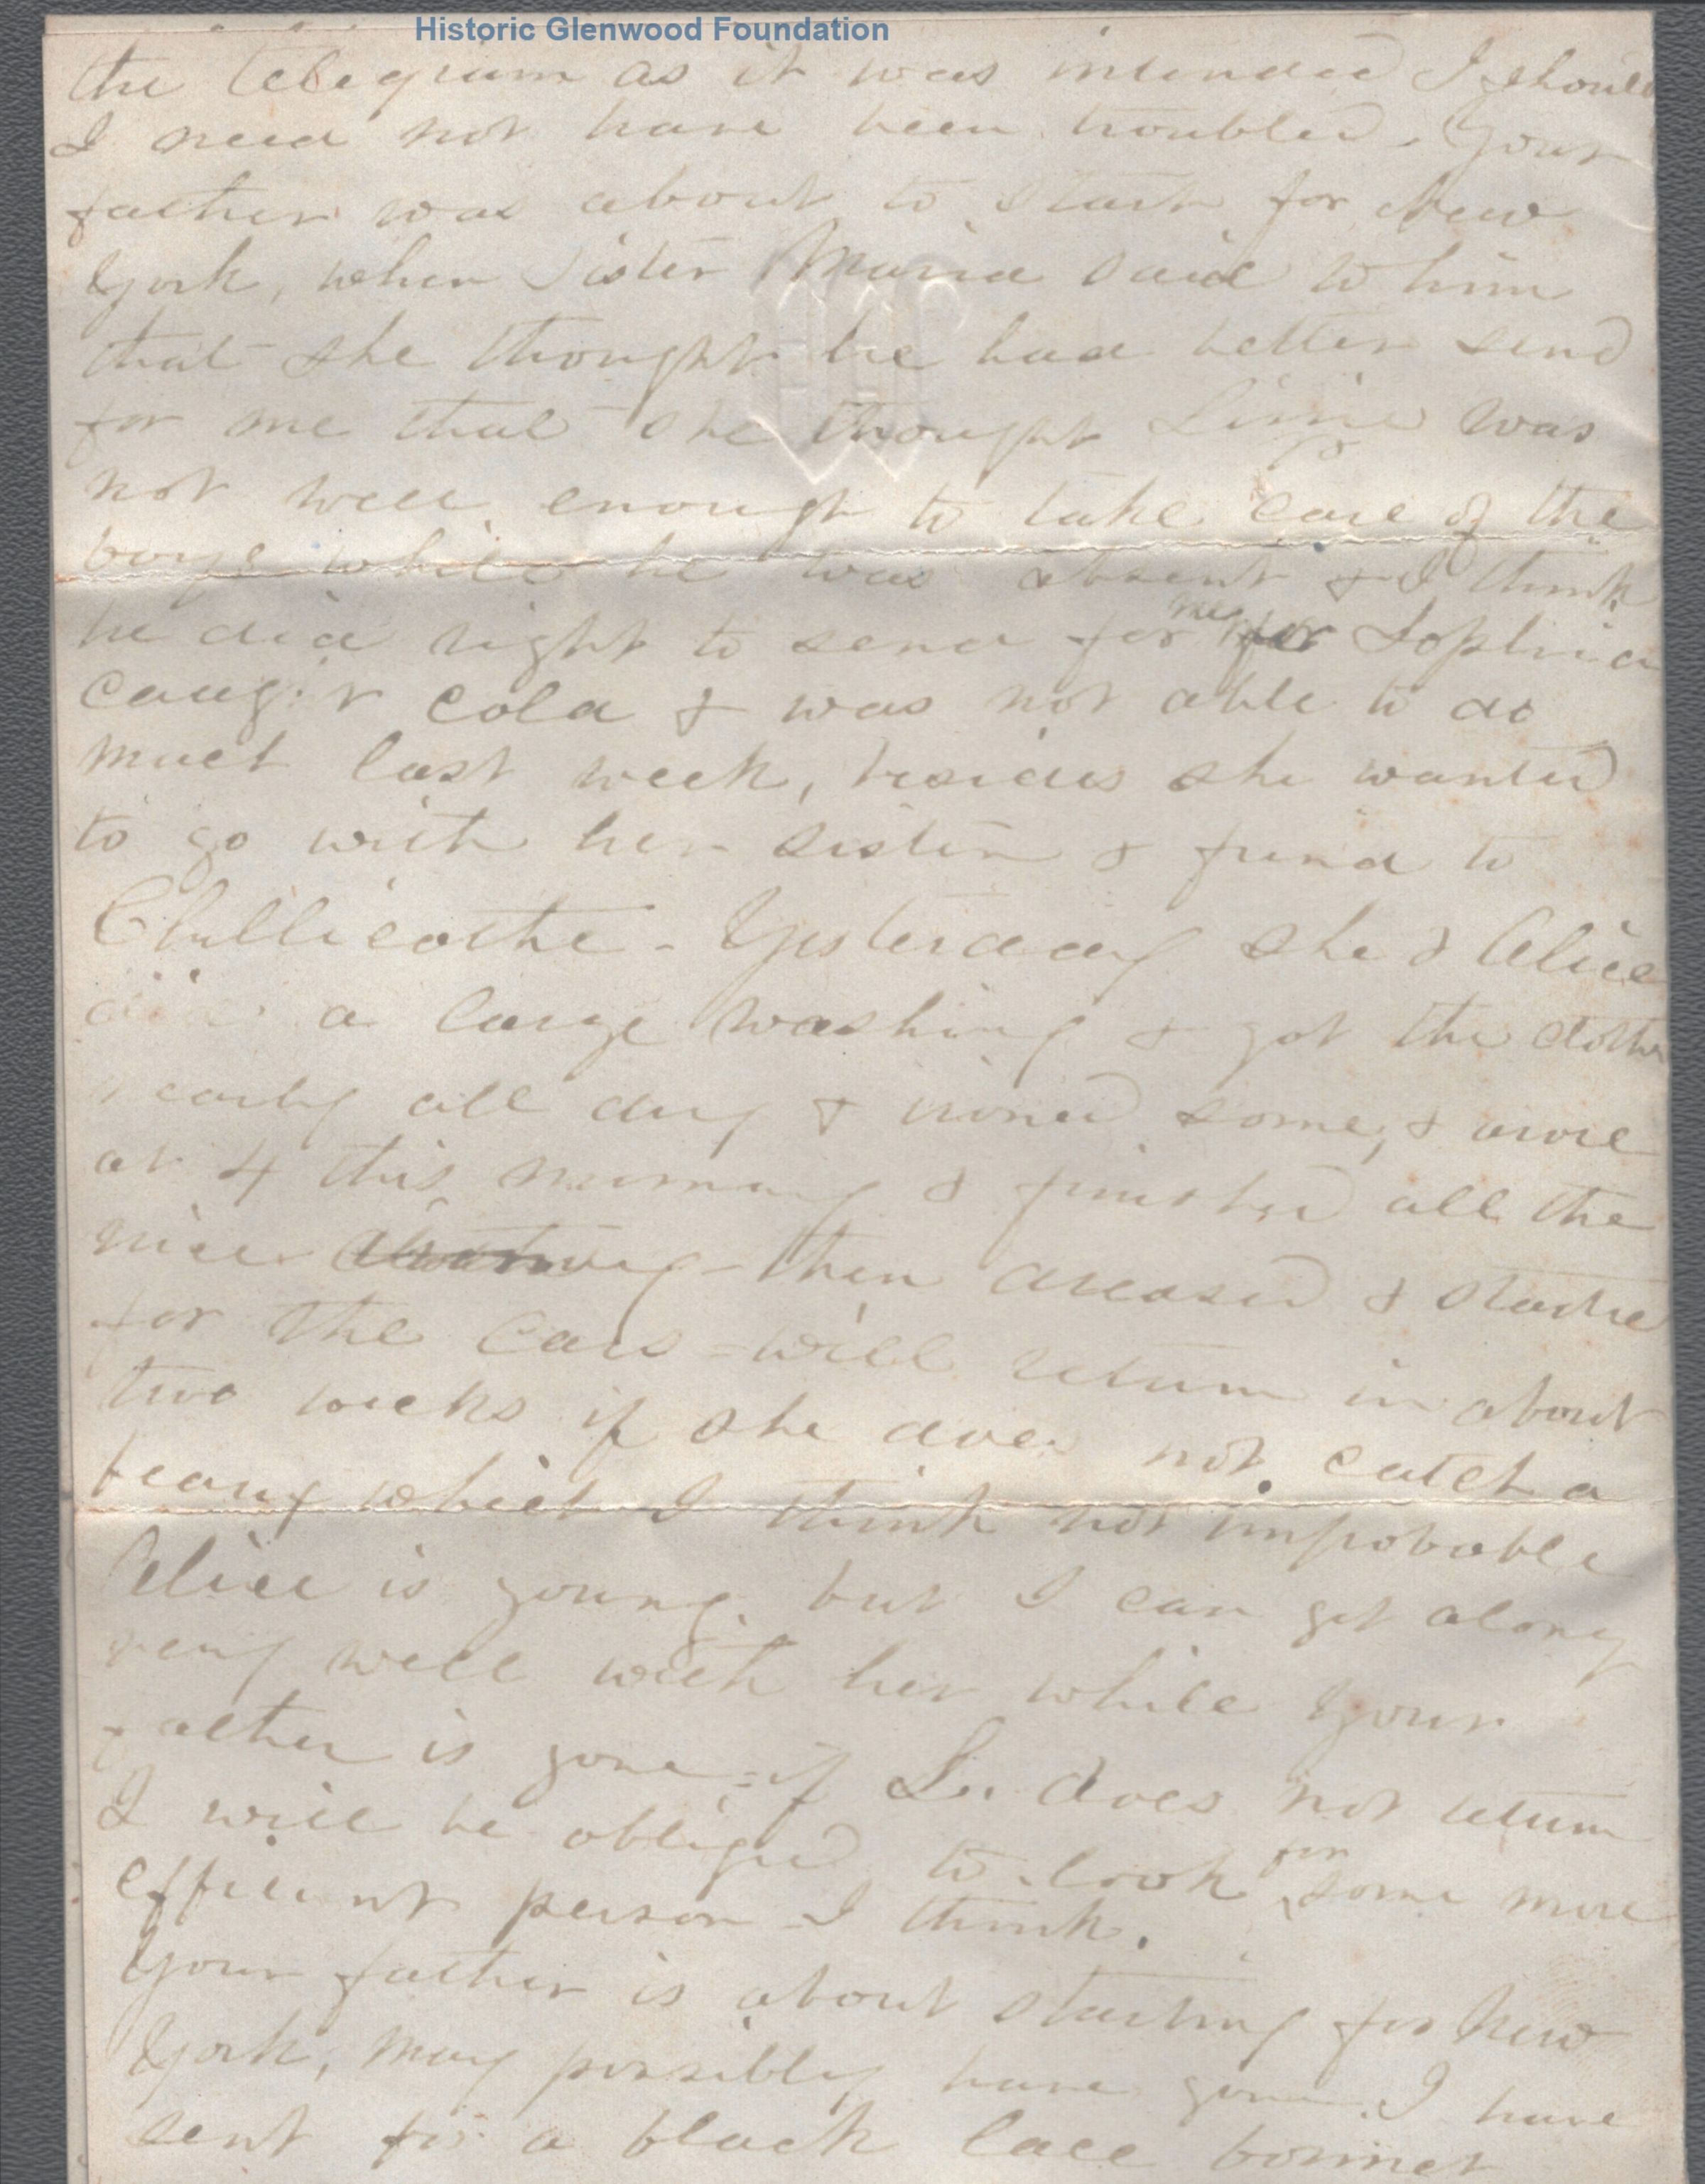 Historic Glenwood Foundation
the telegram as it was intended I should
I need not have been troubled. Your
father was about to start for New
York, when Sister Maria said to him
that she thought he had better send
for me that she thought was
not well enough to take care of the
boys while he was absent & I think
he did right to send for me for Sophia
caught cold & was not able to do
much last week, besides she wanted
to go with her sister & friend to
Chillicothe - Yesterday she & Alice
did a large washing & got the clothes
nearly all dry & ironed some, & arose
at 4 this morning & finished all the
nice then dressed & started
for the cars - will return in about
two weeks if she does not catch a
beau which I think not improbable
Alice is young but I can get along
very well with her while your
father is gone - if S. does not return
I will be obliged to look for some more
efficient person I think.
Your father is about starting for New
York, may possibly have gone. I have
sent for a black lace bonnet